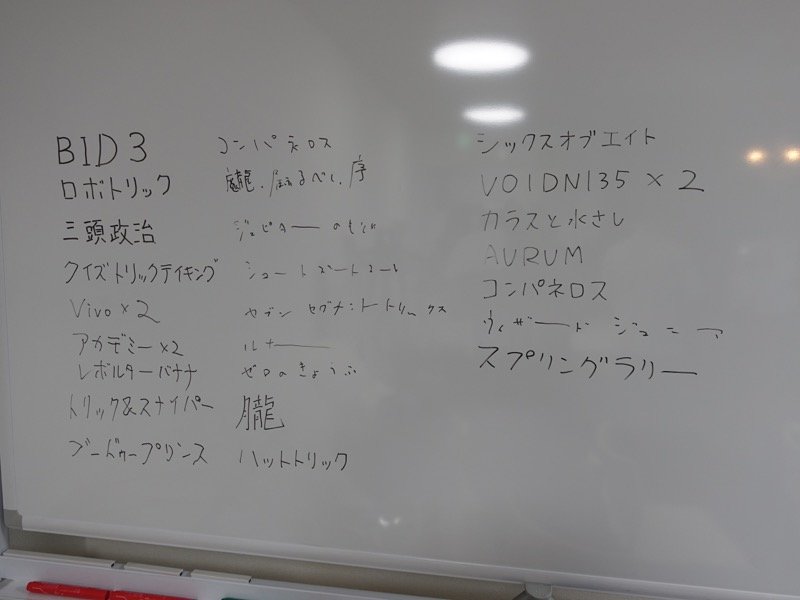 BID3
ロボトリック
三頭政治
クイズトリックテイキング
Vivo×2
アカデミー×2
レボルターバナナ
トリック&スナイパー
ブードゥープリンス
コンパネロス
ジュピターの
シュートオートミール
セブン セブナ:トトリックス
ルナー
ゼロのきょうふ
朧
ハットトリック
シックスオブエイト
VOIDN135×2
カラスと水さし
AURUM
コンパネロス
ウィザードジュニア
スプリングラリー